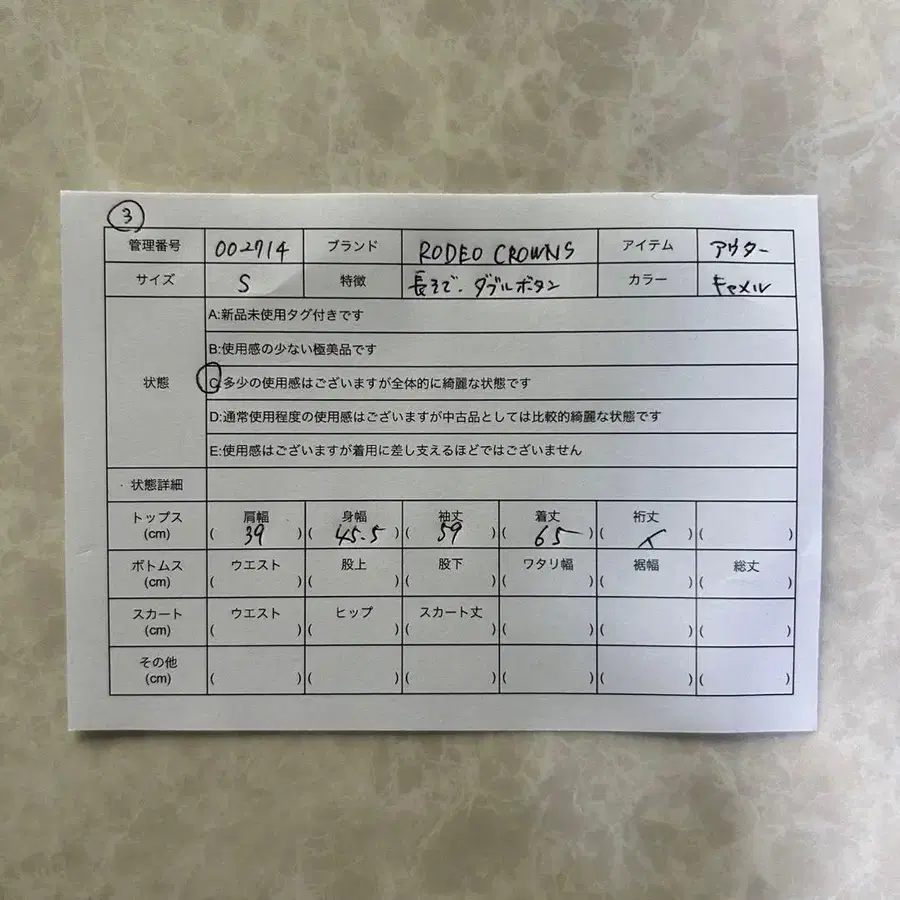 ③
管理番号 002714 ブランド RODEO CROWNS アイテム アウター
サイズ S 特徴 長そで・ダブルボタン カラー キャメル
状態
A:新品未使用タグ付きです
B:使用感の少ない極美品です
C:多少の使用感はございますが全体的に綺麗な状態です
D:通常使用程度の使用感はございますが中古品としては比較的綺麗な状態です
E:使用感はございますが着用に差し支えるほどではございません
・状態詳細
トップス 肩幅 身幅 袖丈 着丈 裄丈
(cm) ( 39 ) ( 45.5 ) ( 59 ) ( 65 ) ( ) ( )
ボトムス ウエスト 股上 股下 ワタリ幅 裾幅 総丈
(cm) ( ) ( ) ( ) ( ) ( ) ( )
スカート ウエスト ヒップ スカート丈
(cm) ( ) ( ) ( ) ( ) ( ) ( )
その他
(cm) ( ) ( ) ( ) ( ) ( ) ( )